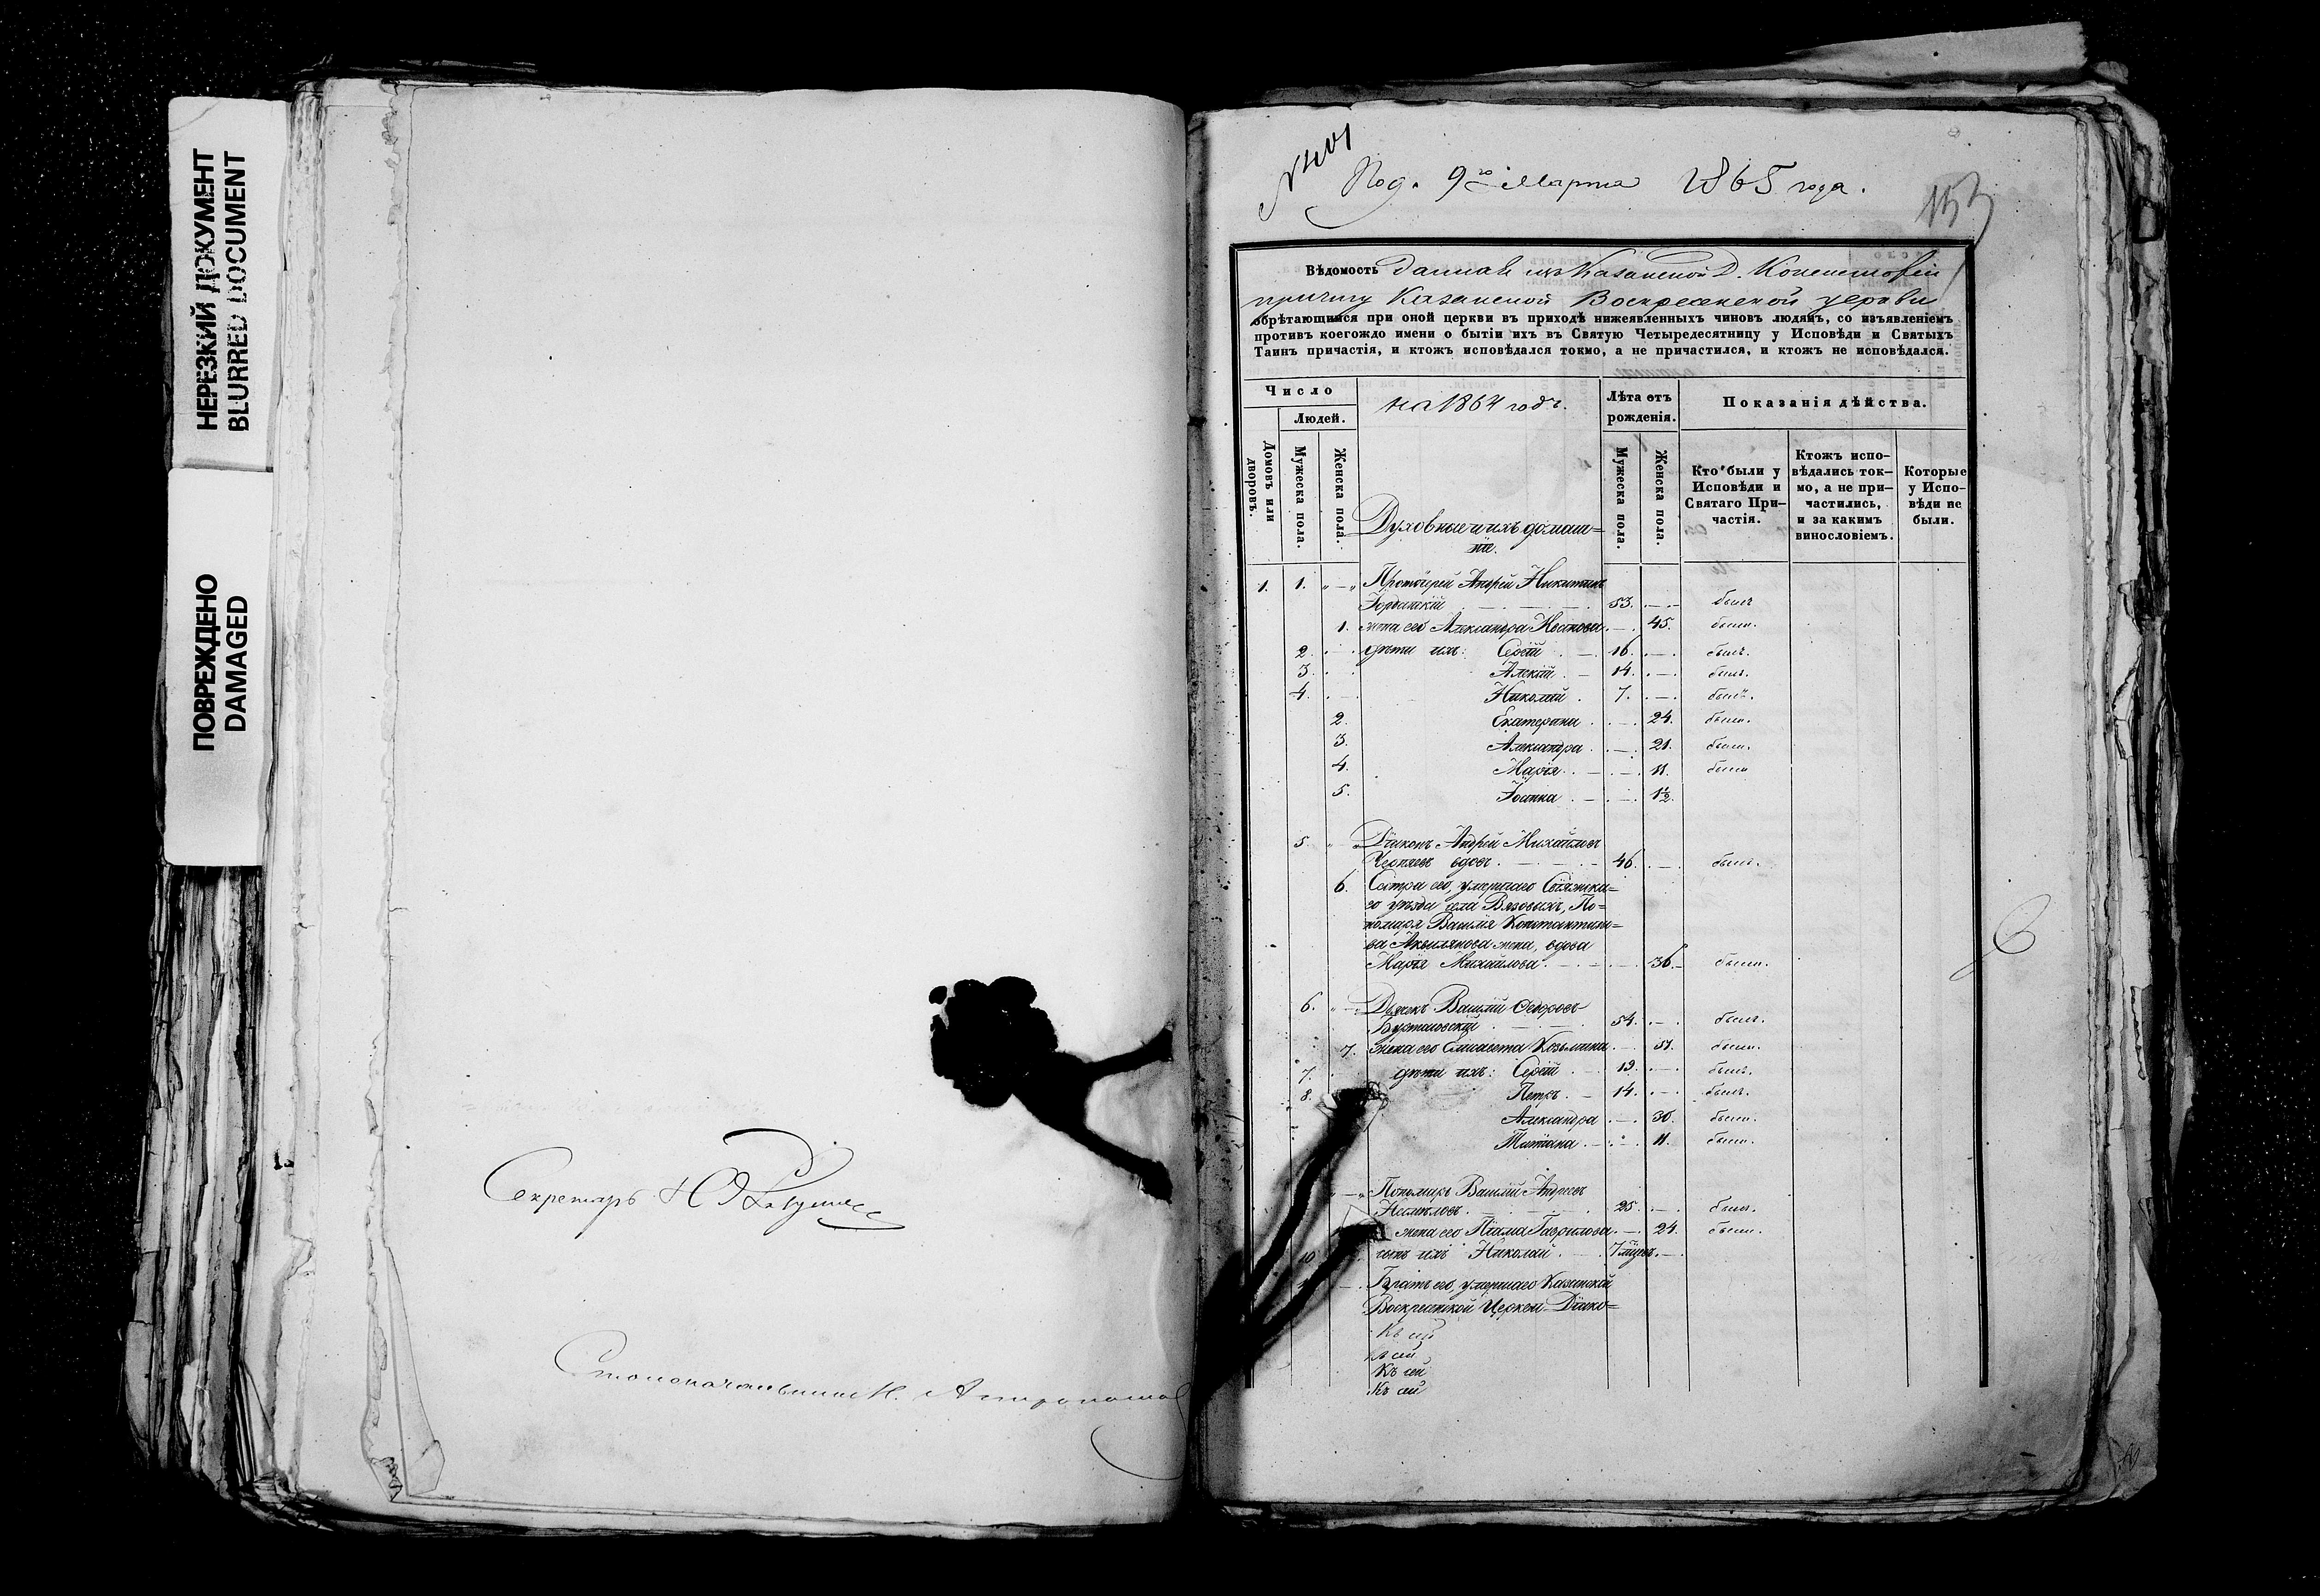 НЕРЕЗКИЙ ДОКУМЕНТ
BLURRED DOCUMENT
ПОВРЕЖДЕНО
DAMAGED
Секретарь
Столоначальникъ
Под. 9го Марта 1865 года.
153
Вѣдомость данная изъ Казанской Д. Консисторіи
причту Казанской Воскресенской церкви
обрѣтающимся при оной церкви въ приходѣ нижеявленныхъ чиновъ людямъ, со изъявленіемъ
противъ коегождо имени о бытіи ихъ въ Святую Четыредесятницу у Исповѣди и Святыхъ
Таинъ причастія, и ктожъ исповѣдался токмо, а не причастился, и ктожъ не исповѣдался.
Число
Людей.
Домовъ или дворовъ.
Мужеска пола.
Женска пола.
на 1864 годъ.
Лѣта отъ рожденія.
Мужеска пола.
Женска пола.
Показанія дѣйства.
Кто были у Исповѣди и Святаго Причастія.
Ктожъ исповѣдались токмо, а не причастились, и за какимъ винословіемъ.
Которые у Исповѣди не были.
Духовные и ихъ домаш=
ніе.
1. 1. Протоіерей Андрей Никитинъ
53. былъ
1. жена его Александра Иванова 45. была.
2. дѣти ихъ: Сергій 16. былъ.
3. Алексій 14. былъ.
4. Николай 7. былъ.
2. Екатерина 24. была.
3. Александра 21. была.
4. Марія 11. была
5. Іоанна 1½.
5 Діаконъ Андрей Михайловъ
вдовъ 46. былъ.
6. Сестра его, умершаго Свіяжска=
го уѣзда села Вязовыхъ, По=
номаря Василія Константино=
ва жена, вдова
Марія Михайлова 36. была.
6. Дьячекъ Василій Ѳедоровъ
54. былъ.
7. жена его Елисавета Козьмина 51. была.
7. дѣти ихъ: Сергій 19. былъ.
8. Петръ 14. былъ.
Александра 30. была.
Татіана 11. была.
Пономарь Василій Андреевъ
Несмѣловъ 25 былъ.
жена его Гаврилова 24. была.
10 сынъ ихъ Николай 7 мѣсяц.
Братъ его, умершаго Казанской
Воскресенской Церкви Діако=
Къ сей
Къ сей
Къ сей
Къ сей